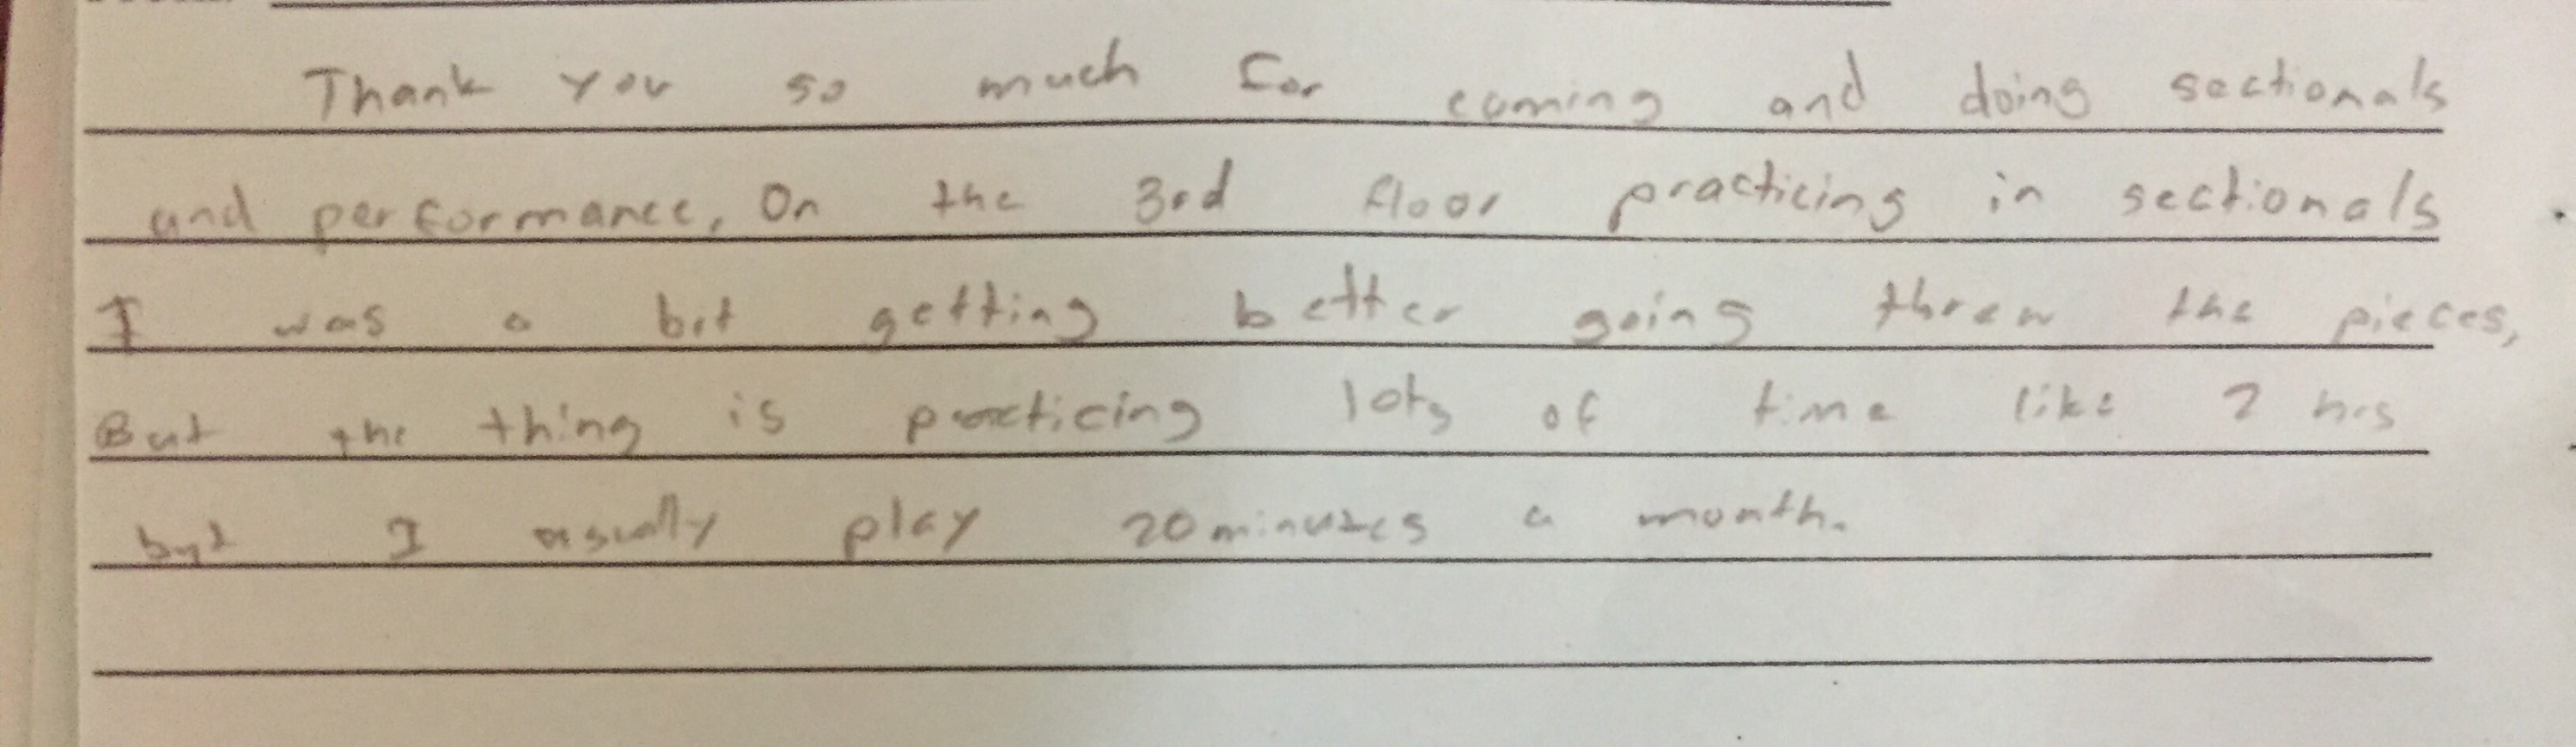 Thank you so much for coming and doing sectionals
and performance. On the 3rd floor practicing in sectionals
I was a bit getting better going threw the pieces,
But the thing is practicing lots of time like 2 hrs
but I usually play 20 minutes a month.